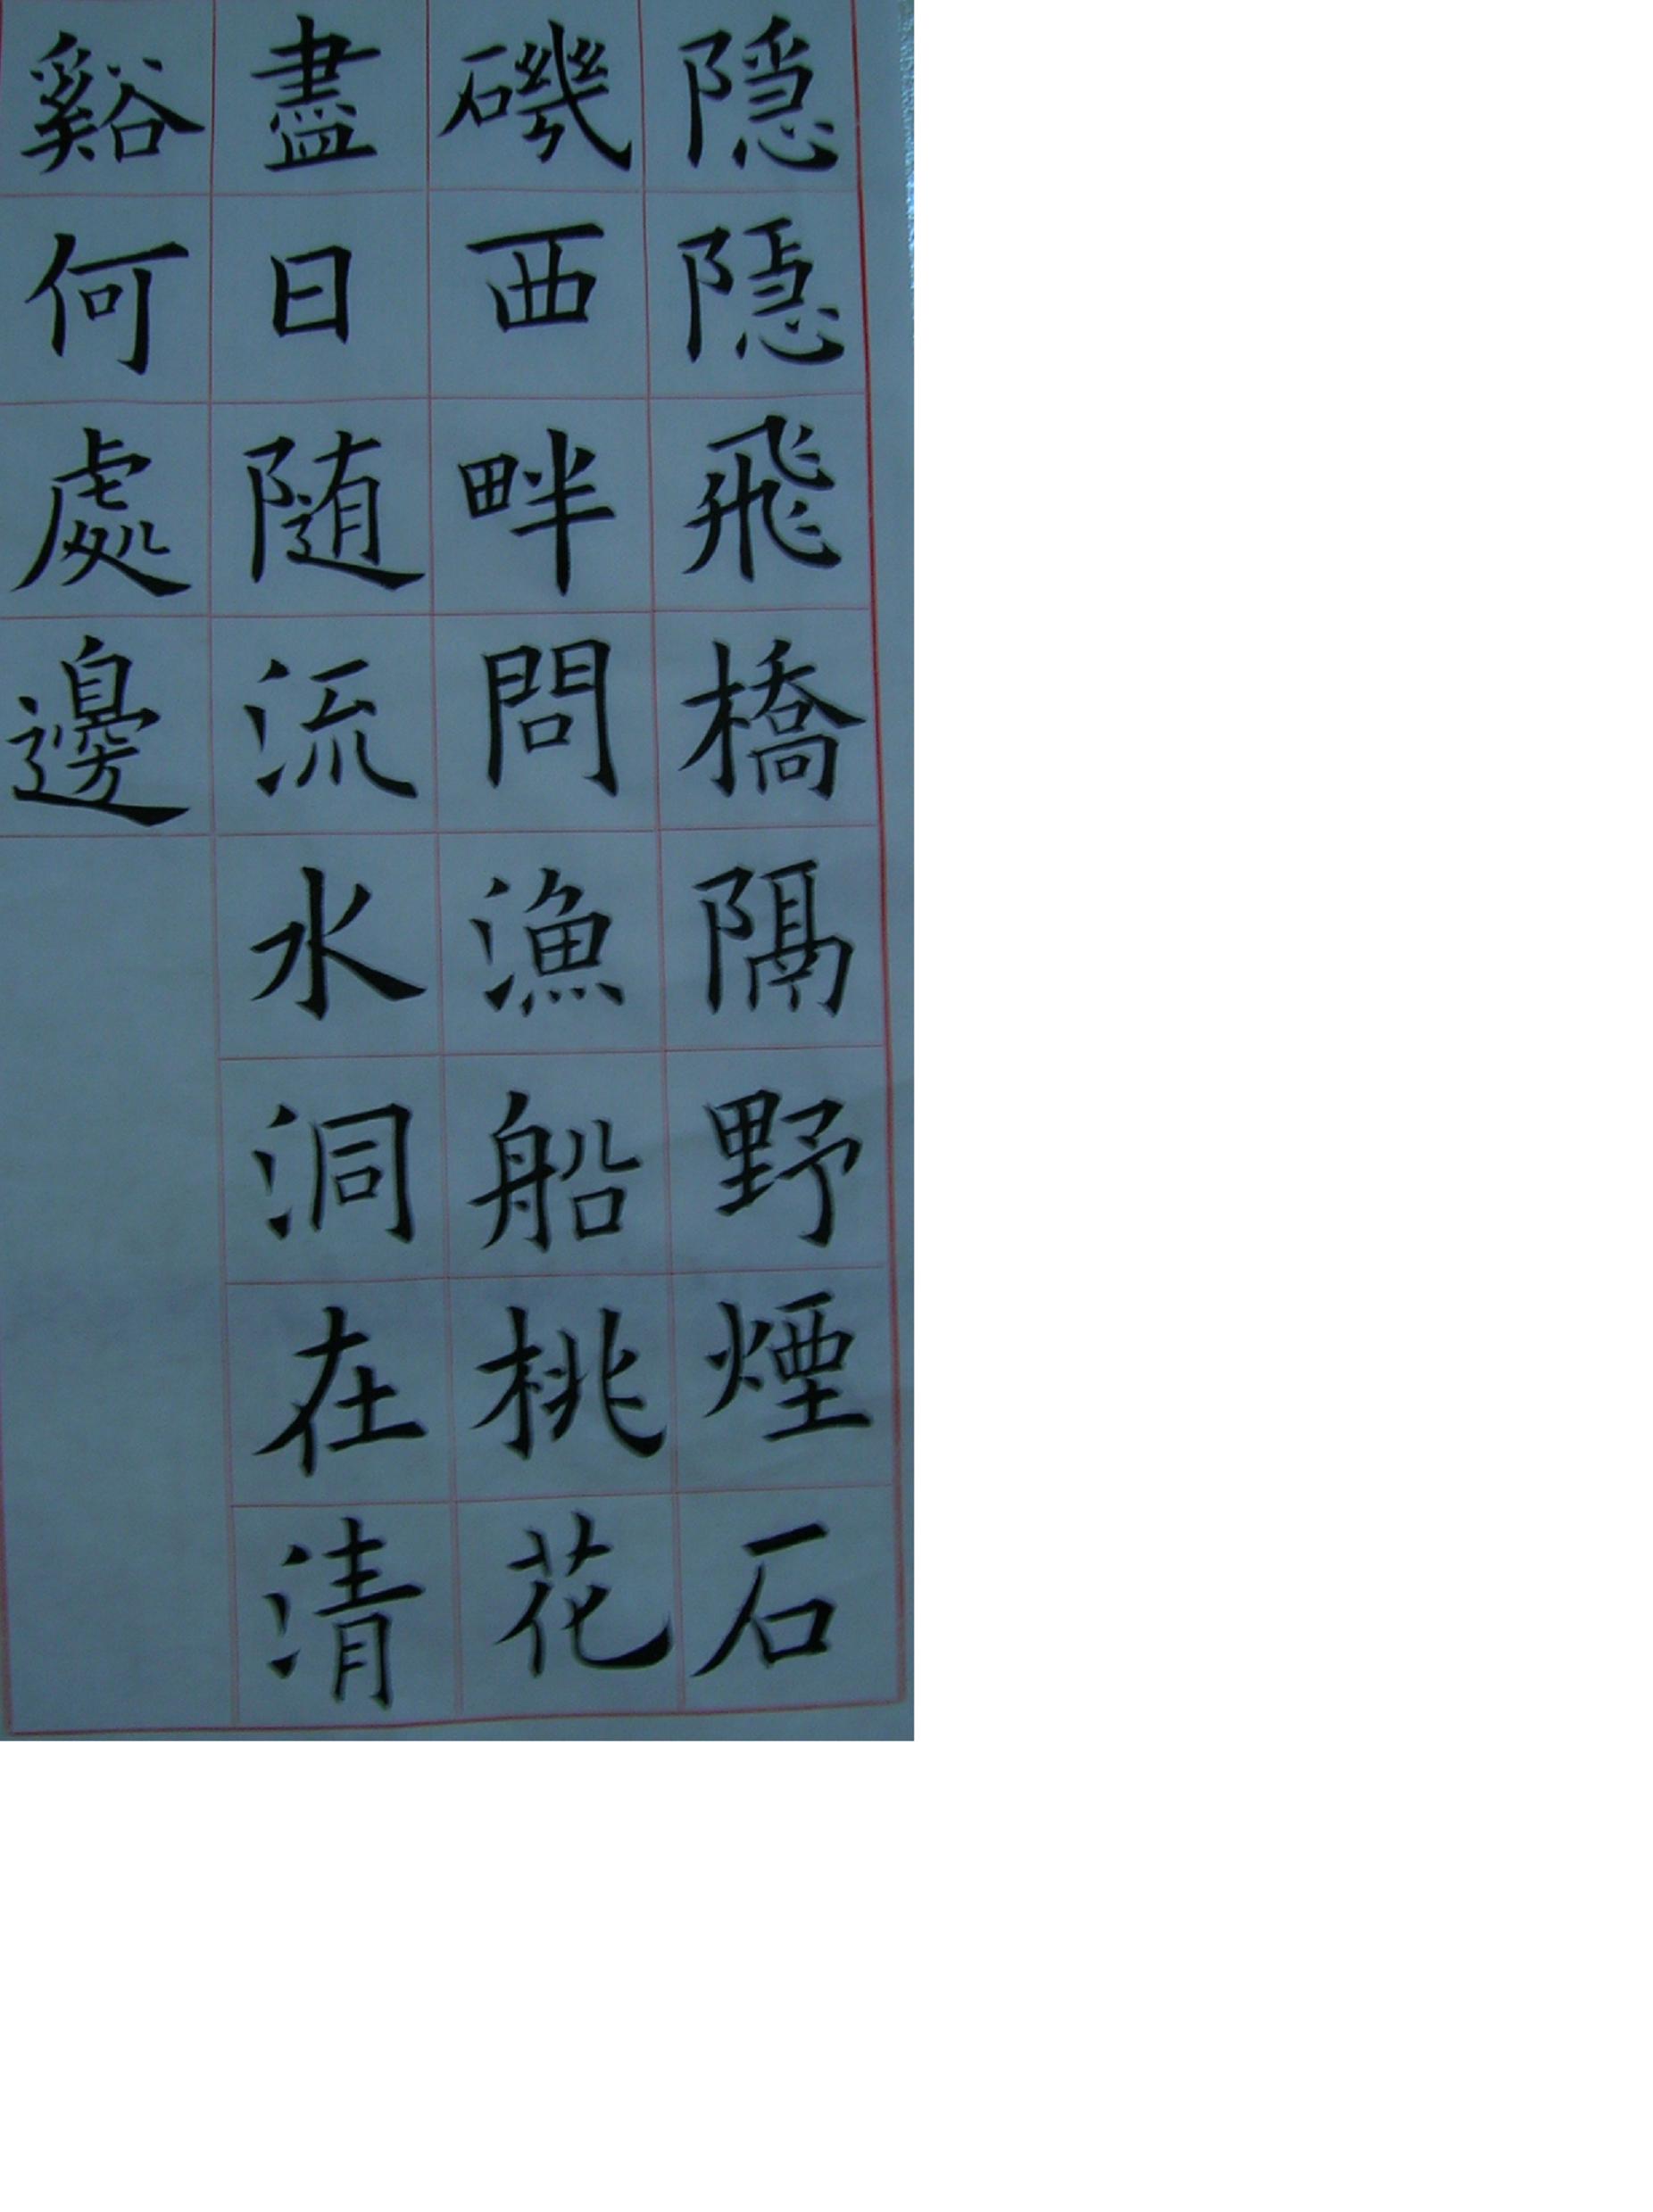 隱隱飛橋隔野煙石
磯西畔問漁船桃花
盡日随流水洞在清
谿何處邊